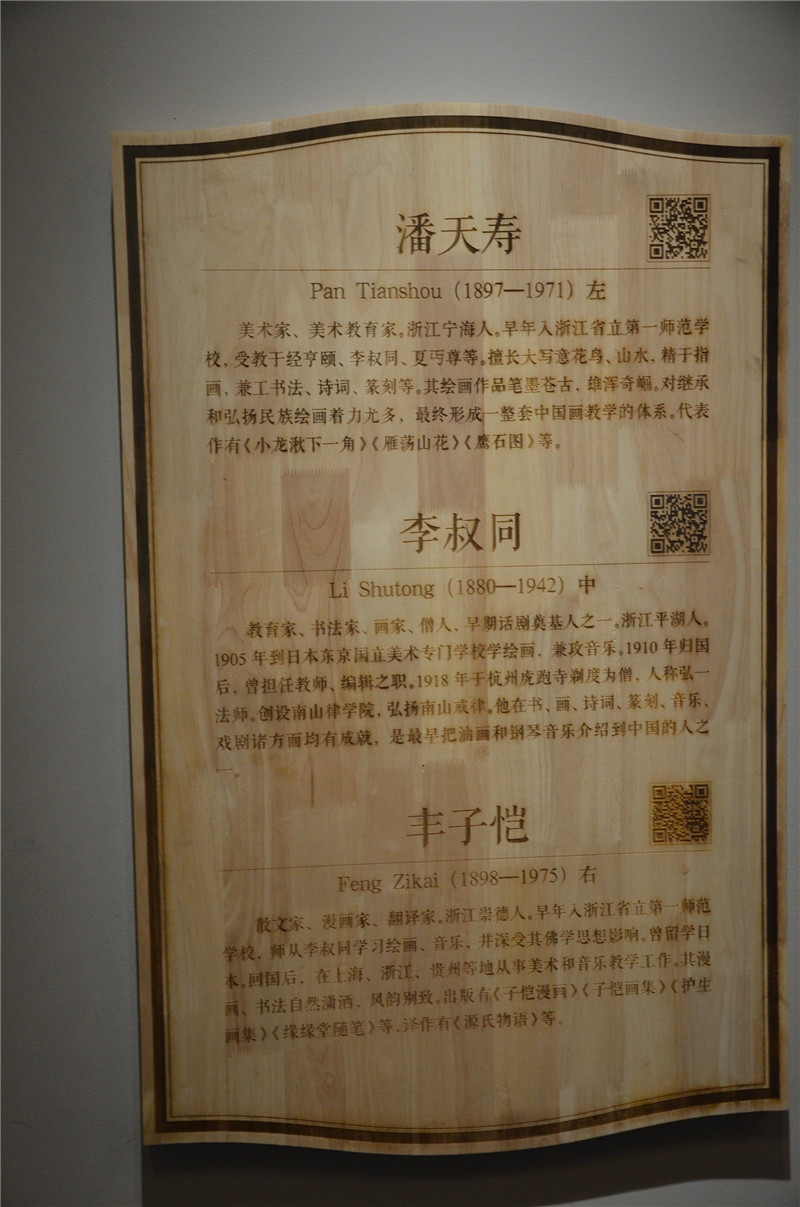 潘天寿
Pan Tianshou（1897—1971）左
美术家、美术教育家。浙江宁海人。早年入浙江省立第一师范学
校，受教于经亨颐、李叔同、夏丏尊等。擅长大写意花鸟、山水，精于指
画，兼工书法、诗词、篆刻等。其绘画作品笔墨苍古，雄浑奇崛。对继承
和弘扬民族绘画着力尤多，最终形成一整套中国画教学的体系。代表
作有《小龙湫下一角》《雁荡山花》《鹰石图》等。
李叔同
Li Shutong（1880—1942）中
教育家、书法家、画家、僧人，早期话剧奠基人之一。浙江平湖人。
1905年到日本东京国立美术专门学校学绘画，兼攻音乐。1910年归国
后，曾担任教师、编辑之职。1918年于杭州虎跑寺剃度为僧，人称弘一
法师。创设南山律学院，弘扬南山戒律。他在书、画、诗词、篆刻、音乐、
戏剧诸方面均有成就，是最早把油画和钢琴音乐介绍到中国的人之
一。
丰子恺
Feng Zikai（1898—1975）右
散文家、漫画家、翻译家。浙江崇德人。早年入浙江省立第一师范
学校，师从李叔同学习绘画、音乐，并深受其佛学思想影响。曾留学日
本。回国后，在上海、浙江、贵州等地从事美术和音乐教学工作。其漫
画、书法自然潇洒，风韵别致。出版有《子恺漫画》《子恺画集》《护生
画集》《缘缘堂随笔》等，译作有《源氏物语》等。